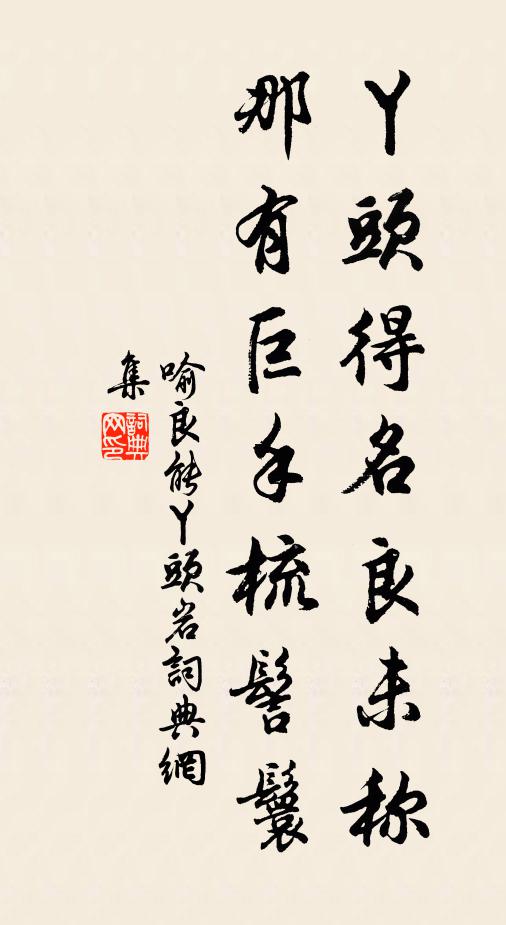 丫頭得名良未称
那有巨手梳髻鬟
喻良能丫頭岩詞典網
集
詞典
网印